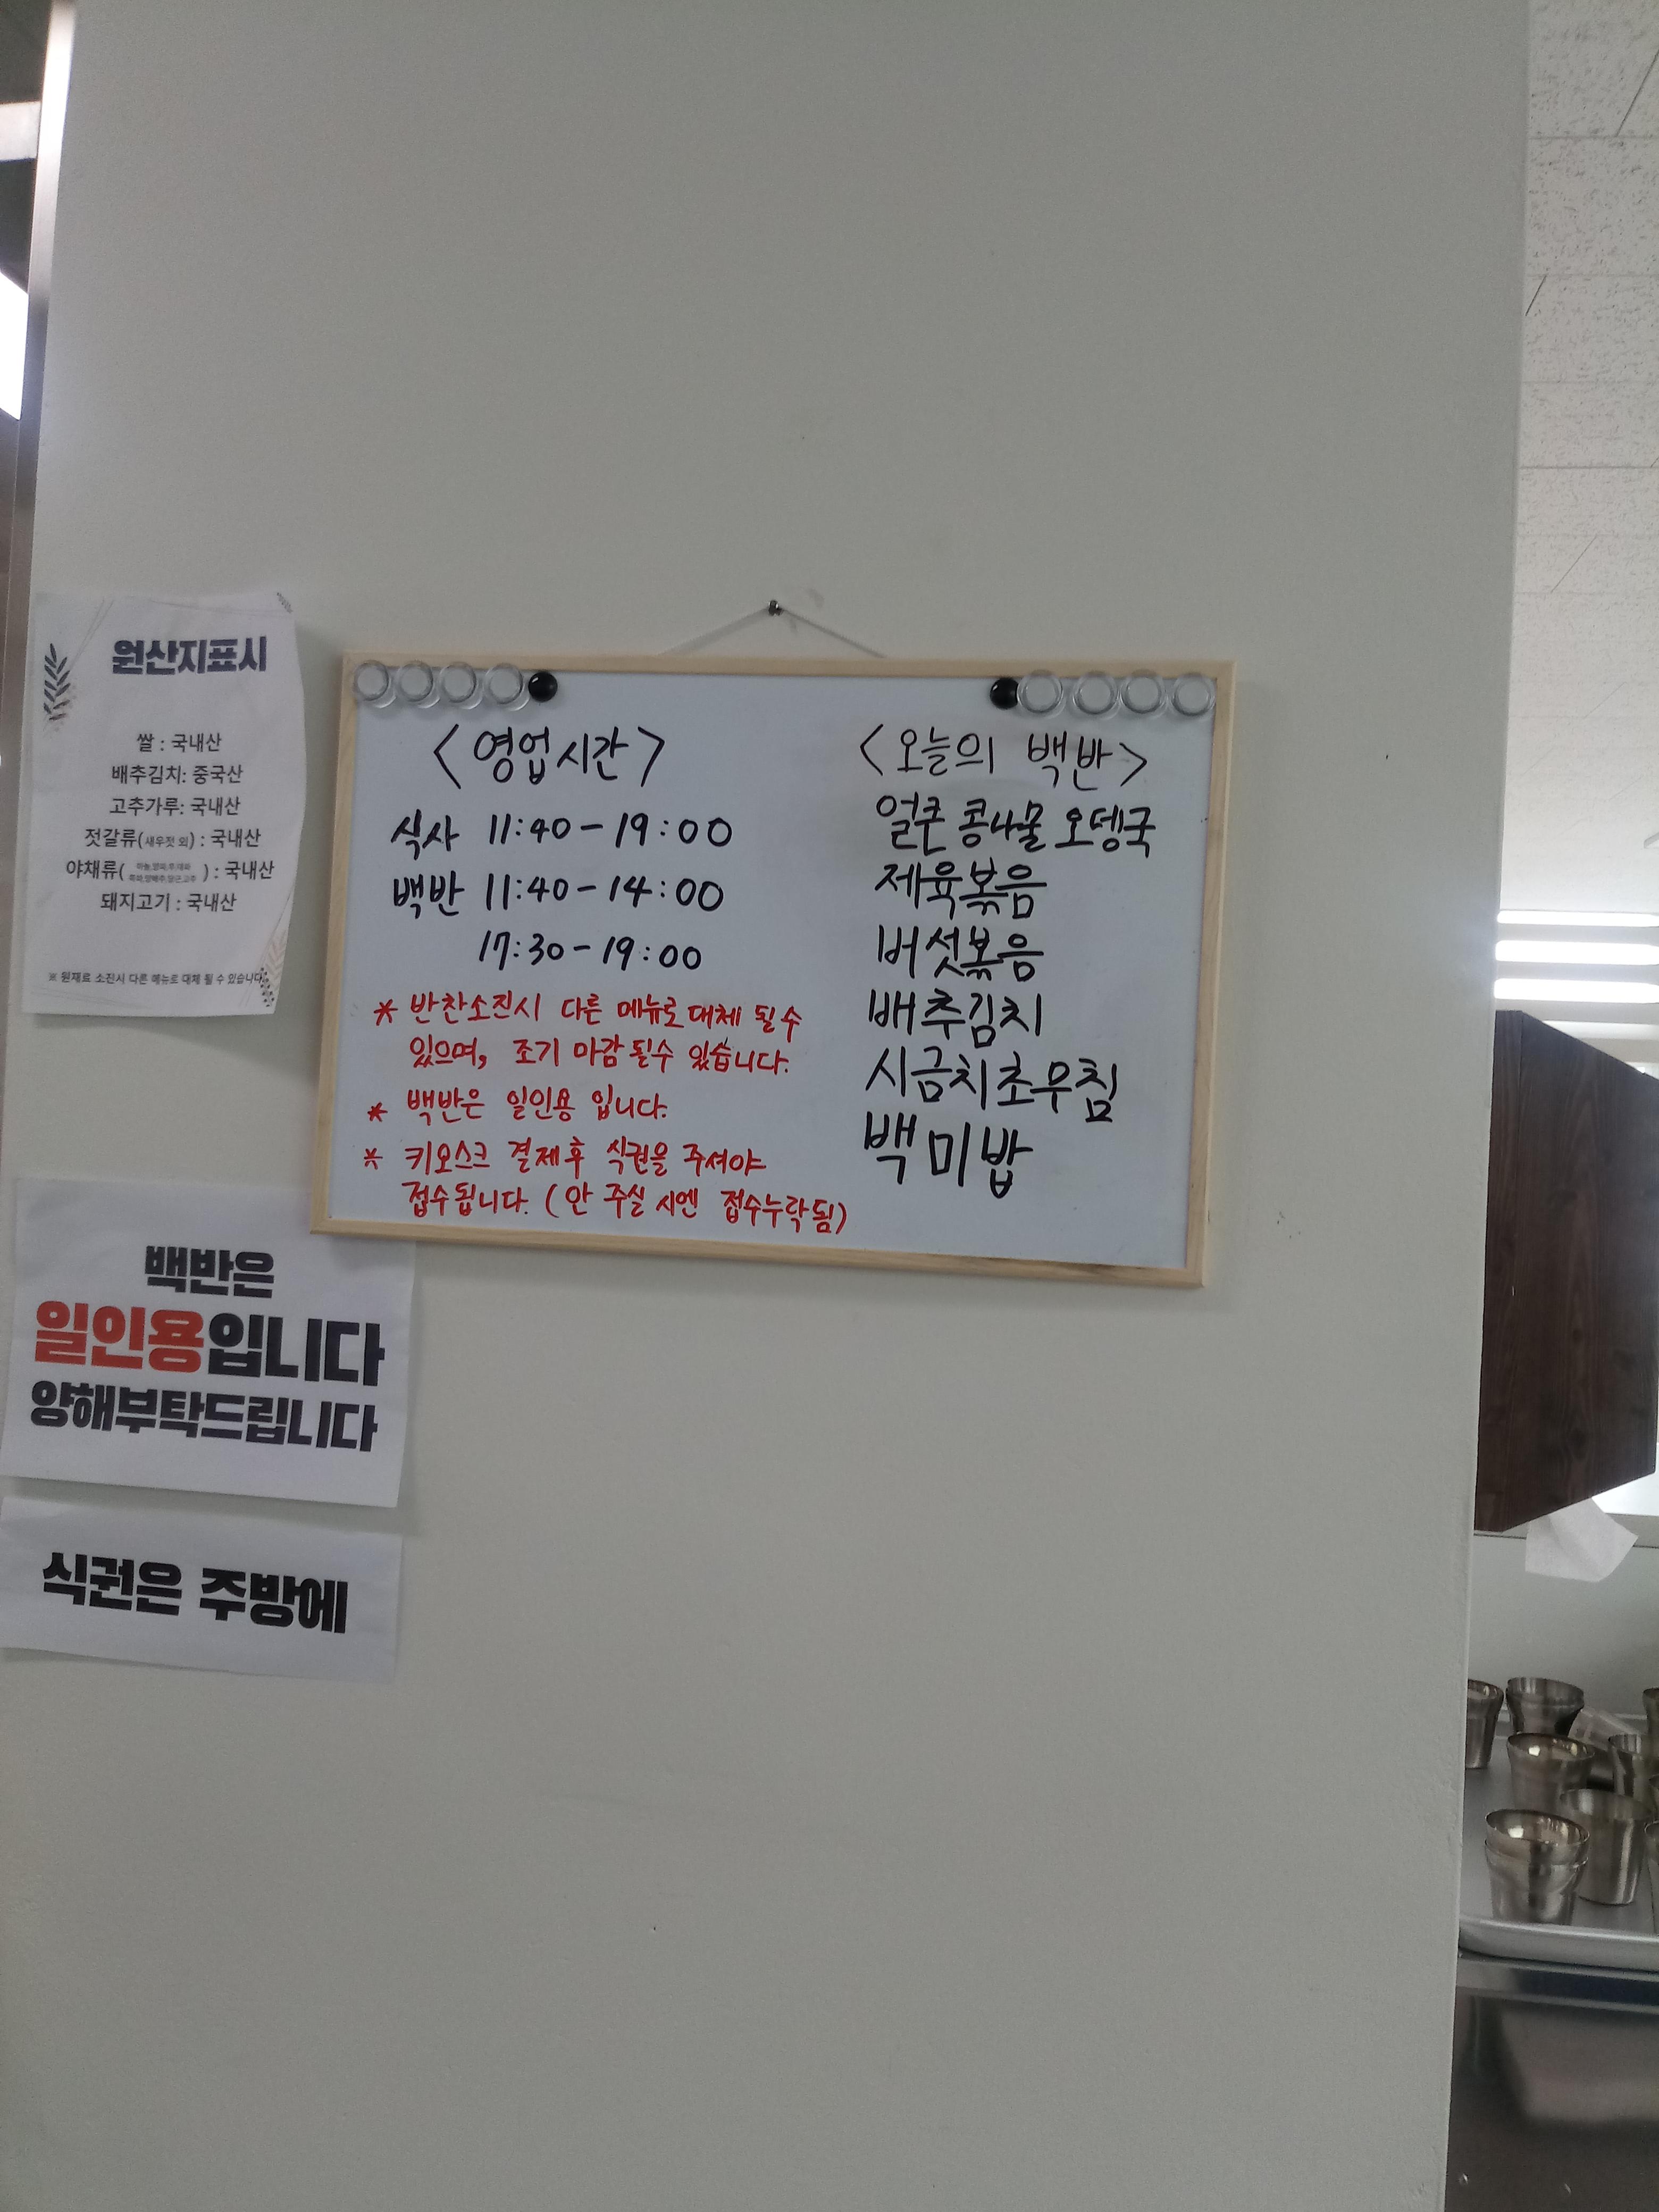 원산지표시
쌀 : 국내산
배추김치: 중국산
고추가루: 국내산
젓갈류(새우젓 외) : 국내산
야채류( ) : 국내산
돼지고기 : 국내산
※ 원재료 소진시 다른 메뉴로 대체 될 수 있습니다
<영업시간>
식사 11:40-19:00
백반 11:40-14:00
17:30-19:00
* 반찬소진시 다른 메뉴로 대체 될 수
있으며, 조기 마감 될수 있습니다.
* 백반은 일인용 입니다.
* 키오스크 결제후 식권을 주셔야
접수됩니다. (안 주실 시엔 접수누락됨)
<오늘의 백반>
얼큰 콩나물 오뎅국
제육볶음
버섯볶음
배추김치
시금치초무침
백미밥
백반은
일인용입니다
양해부탁드립니다
식권은 주방에